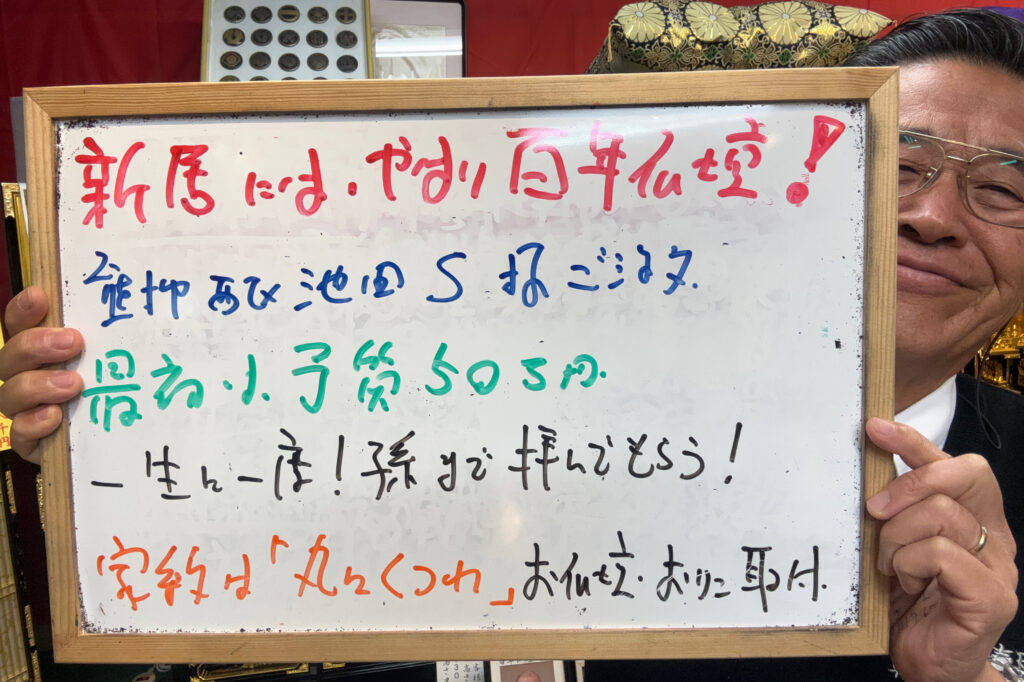 新居には、やはり百年仏壇!
池田S様ご注文.
最初 予算50万円.
一生に一度!孫まで拝んでもらう!
家紋は「丸にくつわ」お仏壇・取付.